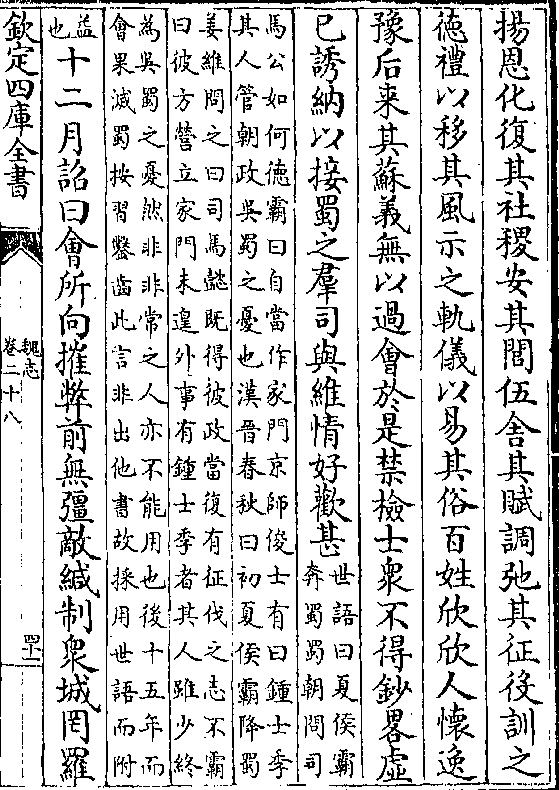 揚恩化復其社稷安其閭伍舍其賦調弛其征役訓之
德禮以移其風示之軌儀以易其俗百姓欣欣人懷逸
豫后来其蘇義無以過會於是禁檢士衆不得鈔畧虛
已誘納以接蜀之羣司與維情好歡甚
世語曰夏侯霸
奔蜀蜀朝問司
馬公如何德霸曰自當作家門京師俊士有曰鍾士季
其人管朝政吳蜀之憂也漢晉春秋曰初夏侯霸降蜀
姜維問之曰司馬懿既得彼政當復有征伐之志不霸
曰彼方營立家門未遑外事有鍾士季者其人雖少終
為吳蜀之憂然非非常之人亦不能用也後十五年而
會果滅蜀按習鑿齒此言非出他書故採用世語而附
益
也
十二月詔曰會所向摧弊前無彊敵緘制衆城罔羅
欽定四庫全書
魏志
卷二十八
四十一